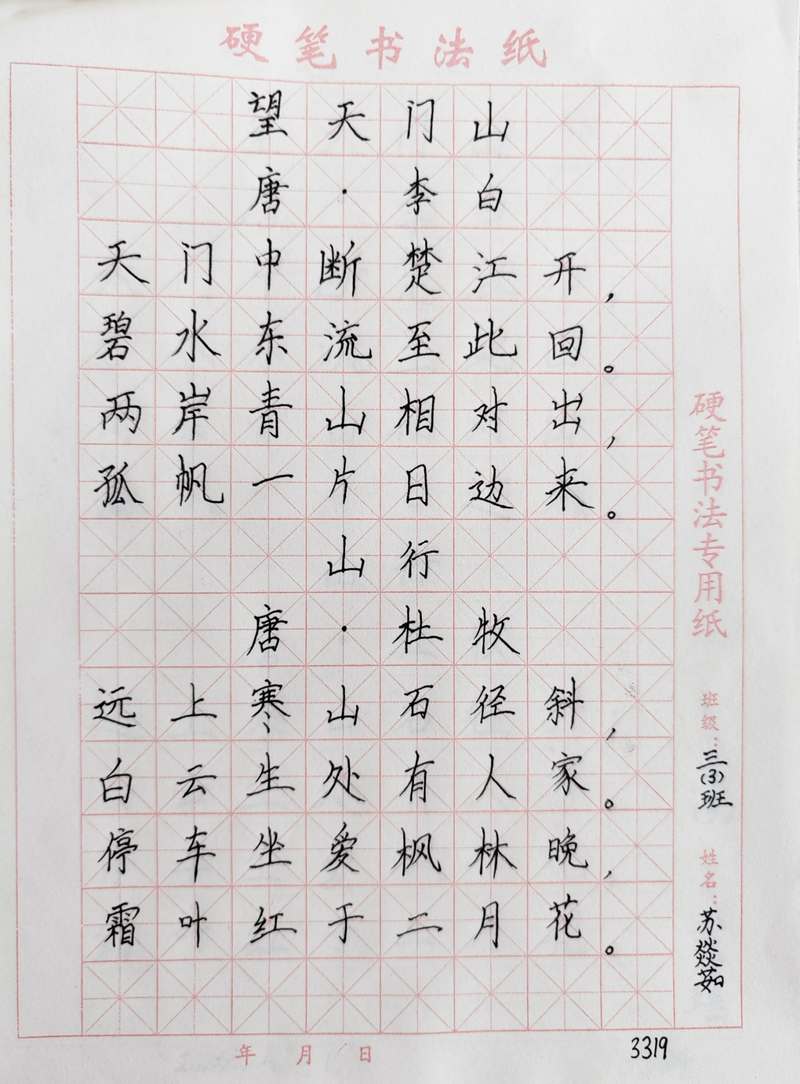 硬笔书法纸
望天门山
唐·李白
天门中断楚江开，
碧水东流至此回。
两岸青山相对出，
孤帆一片日边来。
山行
唐·杜牧
远上寒山石径斜，
白云生处有人家。
停车坐爱枫林晚，
霜叶红于二月花。
硬笔书法专用纸
班级：三(3)班
姓名：苏燚茹
年 月 日
3319